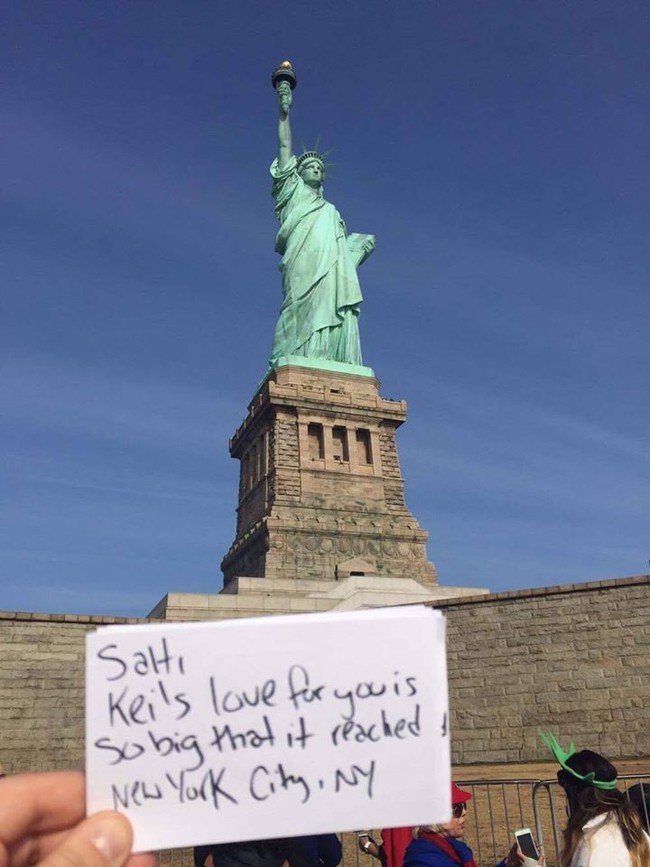 Salti,
Kei's love for you is
so big that it reached
New York City, NY